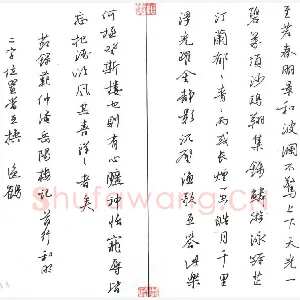 至若春明景和波瀾不驚上下天光一
碧萬頃沙鷗翔集錦鱗游泳岸芷
汀蘭郁々青々而或長煙一空皓月千里
浮光躍金靜影沉璧漁歌互答此樂
何極登斯樓也則有心曠神怡寵辱皆
忘把酒臨風其喜洋々者矣
節錄範仲淹岳陽樓記 首行和明
二字位置當互換 遠鶴
Shufawang.cn